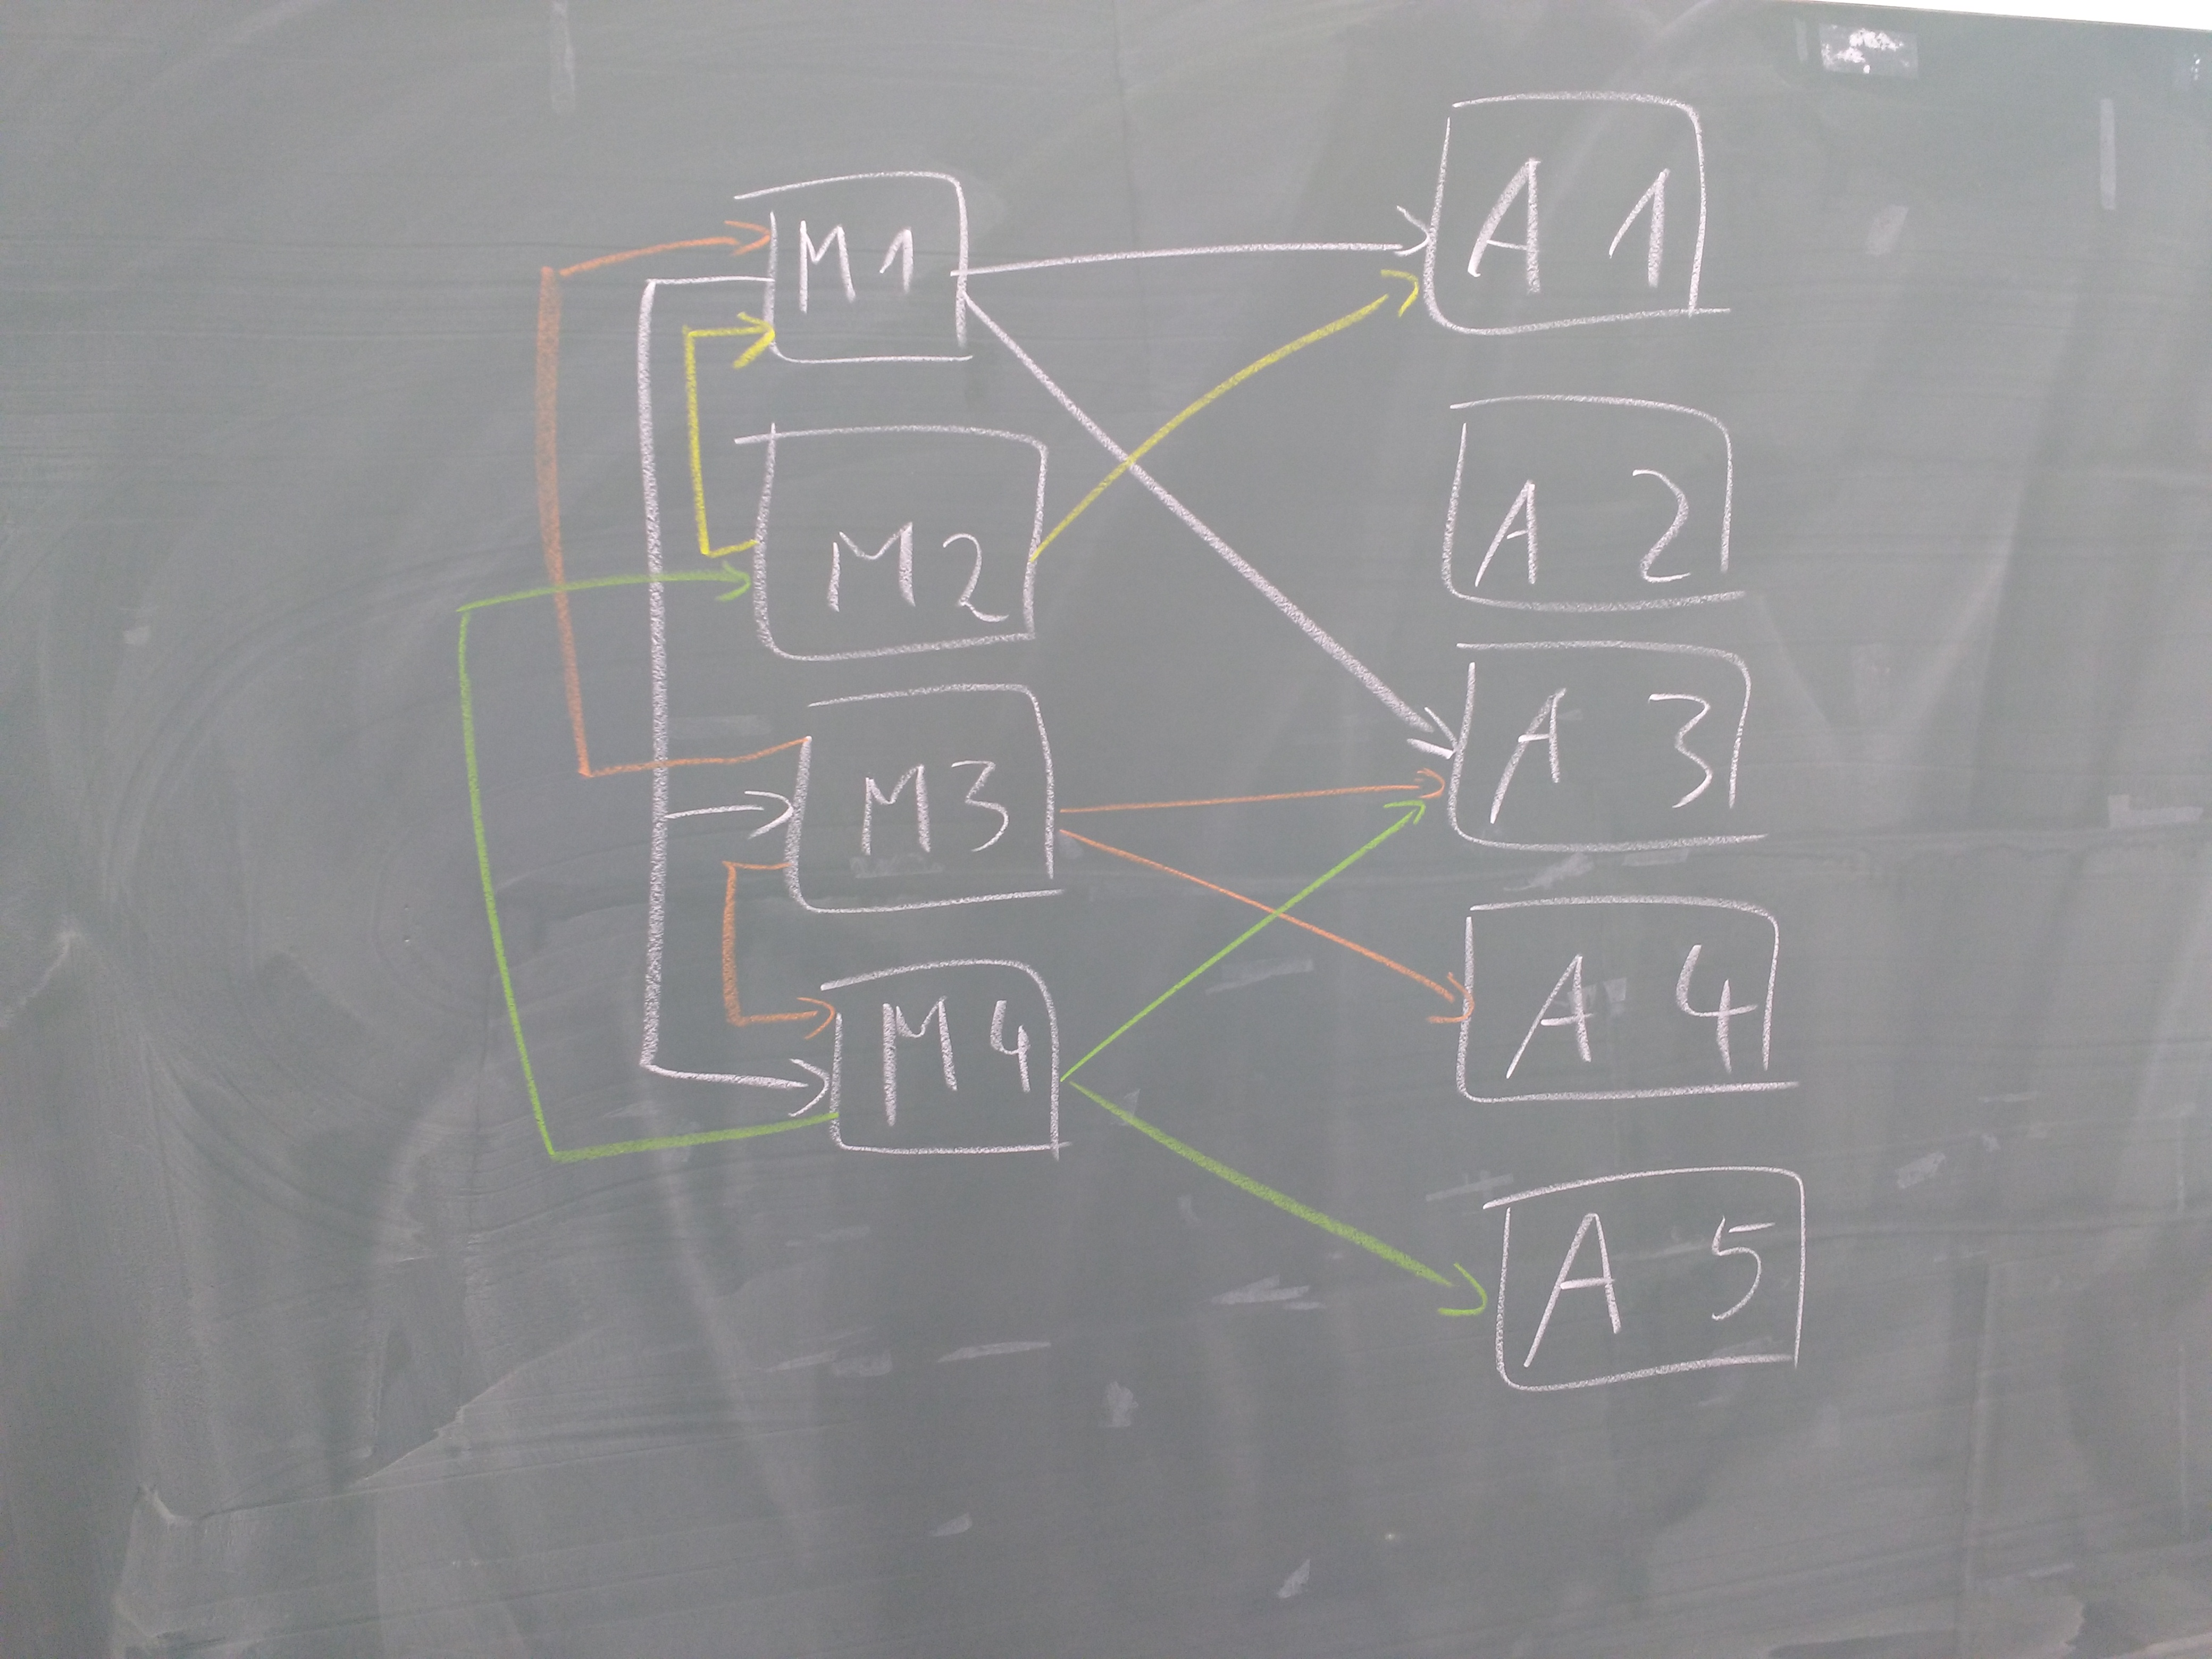 M1
M2
M3
M4
A 1
A 2
A 3
A 4
A 5